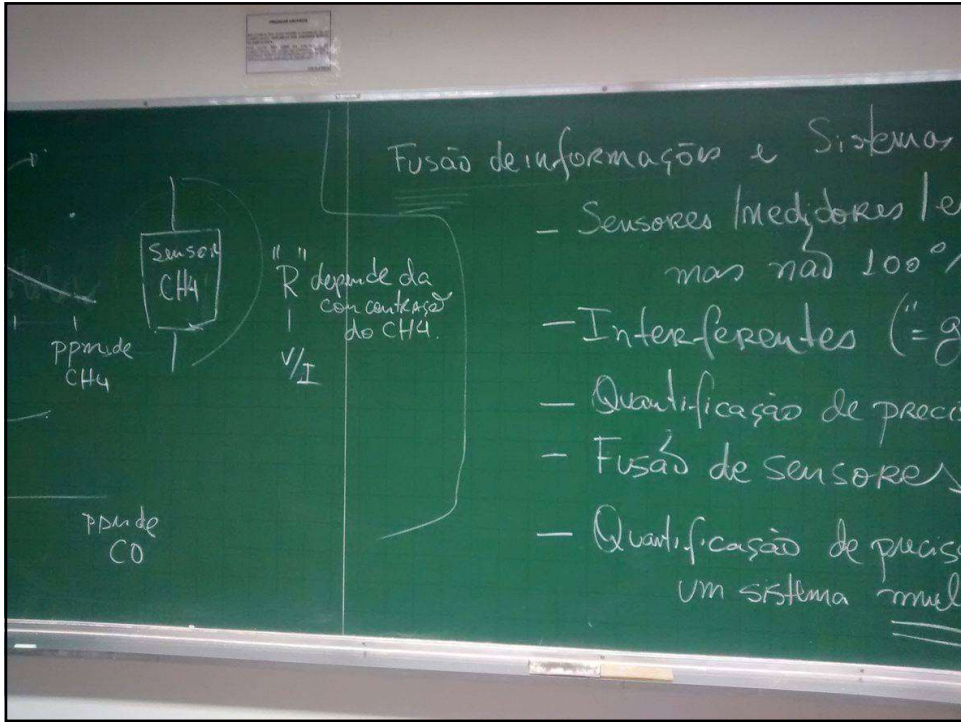 Sensor
CH4
"R" depende da
concentração
do CH4.
V/I
ppm de
CH4
ppm de
CO
Fusão de informações e Sistemas
- Sensores / medidores / e
mas não 100%
- Interferentes ("= g
- Quantificação de precis
- Fusão de sensores
- Quantificação de precis
um sistema mul